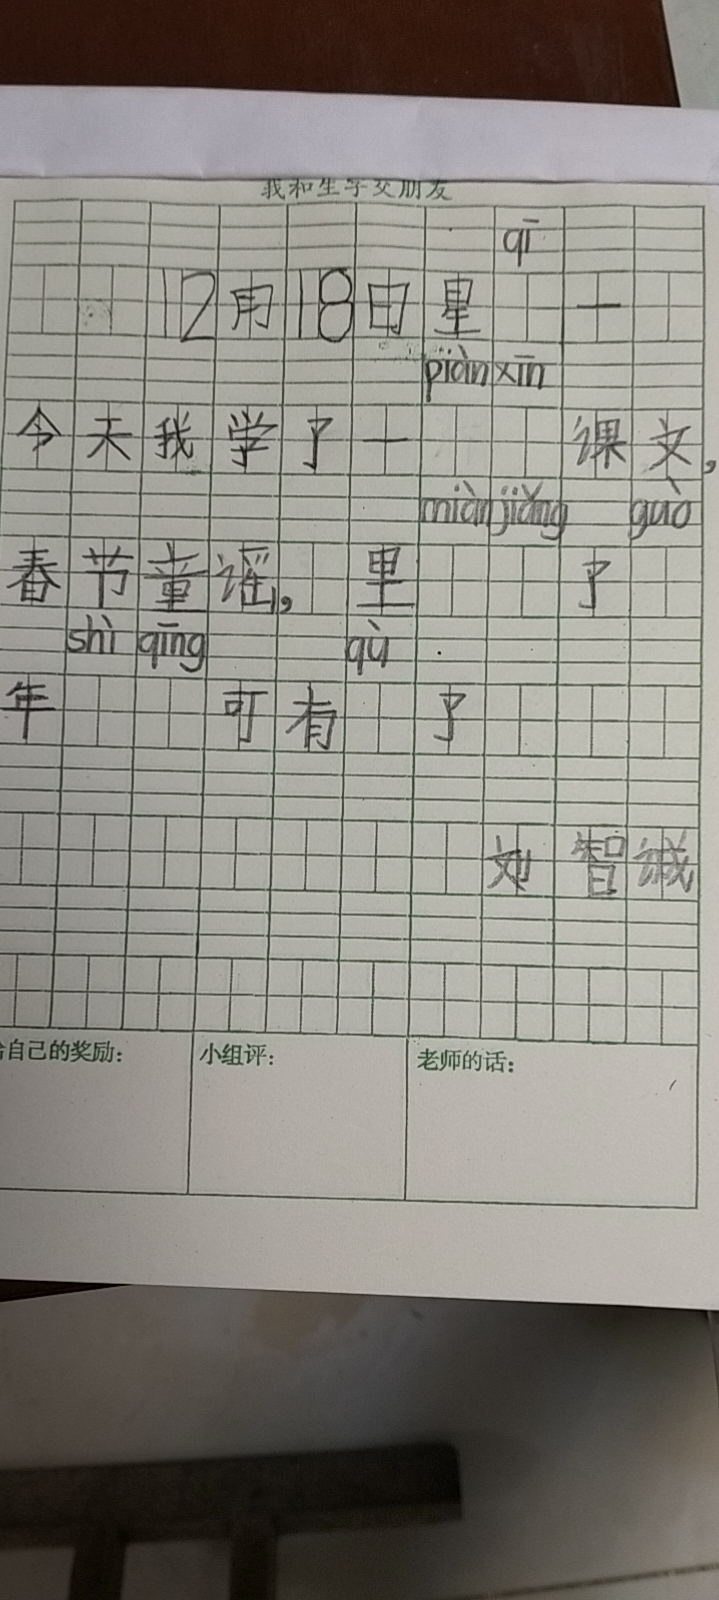 我和生字交朋友
qī
12月18日星 一
piàn xīn
今天我学了一 课文,
miàn jiǎng guò
春节童谣, 里 了
shì qīng qù
年 可有 了
刘智诚
自己的奖励: 小组评: 老师的话: